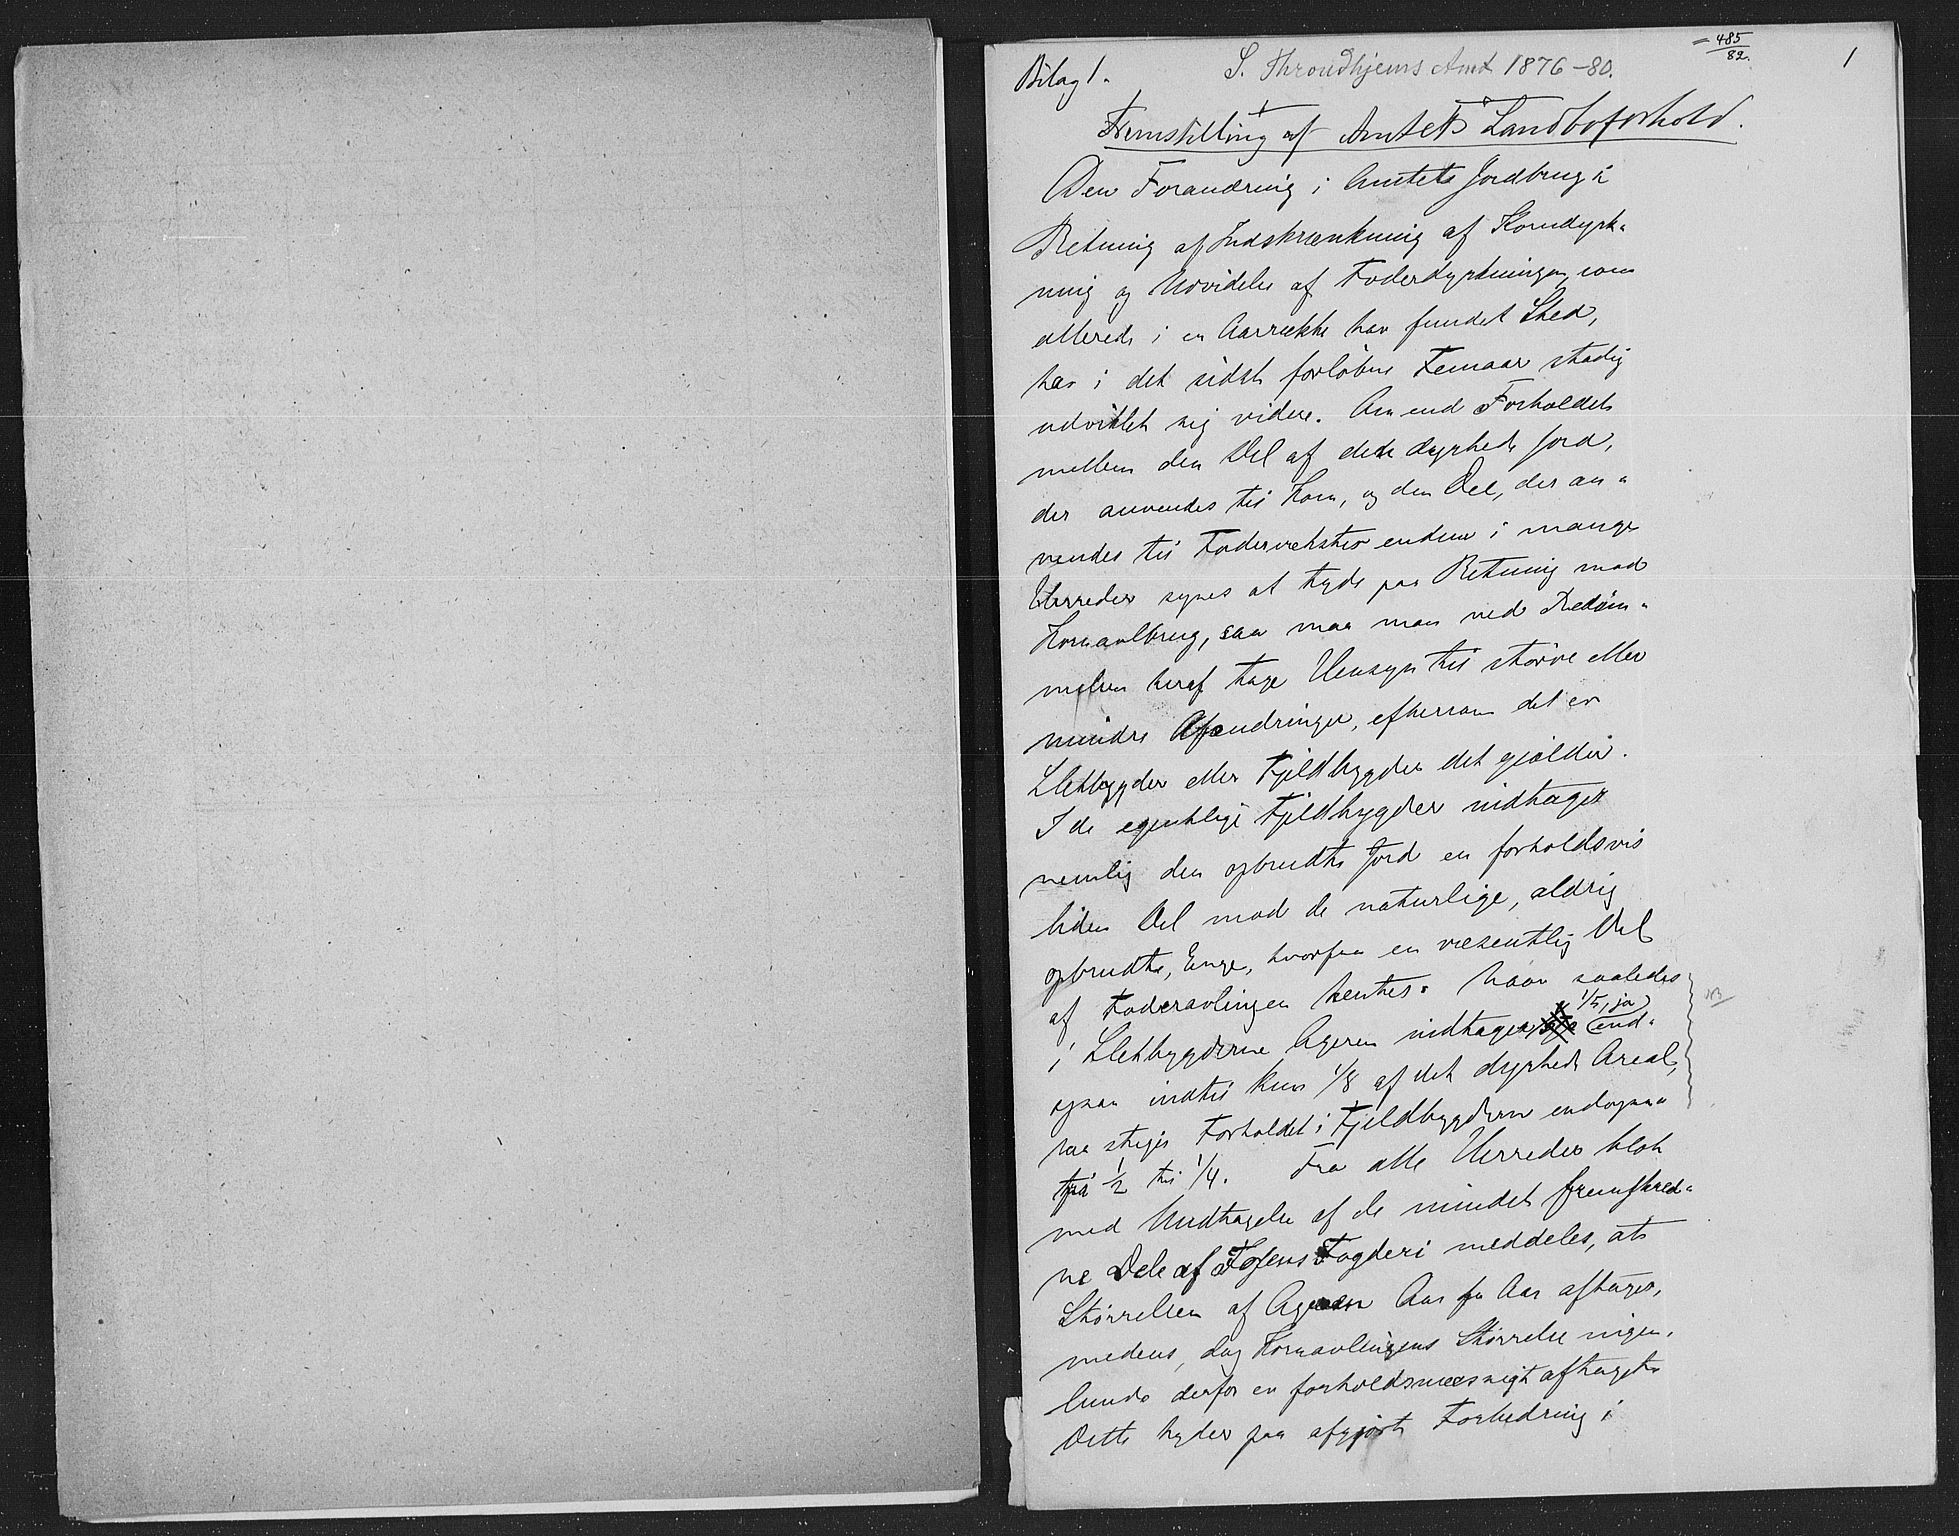 Bilag 1.
S. Throndhjems Amt 1876-80.
= 485/82.
1
Fremstilling af Amtets Landboforhold.
Den Forandring i Amtets Jordbrug i
Retning af Indskrænkning af Korndyrk-
ning og Udvidelse af Foderdyrkningen, som
allerede i en Aarrække har fundet Sted,
har i det sidst forløbne Femaar stadig
udviklet sig videre. Om end Forholdet
mellem den Del af den dyrkede Jord,
der anvendes til Korn, og den Del, der an-
vendes til Fodervækster endnu i mange
Herreder synes at tyde paa Retning mod
Kornavlbrug, saa maa man ved Bedøm-
melsen heraf tage Hensyn til større eller
mindre Afændringer, eftersom det er
Sletbygder eller Fjeldbygder det gjælder.
I de egentlige Fjeldbygder indtager
nemlig den opbrudte Jord en forholdsvis
liden Del mod de naturlige, aldrig
opbrudte, Enge, hvorfra en væsentlig Del
af Foderavlingen hentes. Naar saaledes
i Sletbygderne Ageren indtager 1/5, ja end-
NB
ogsaa indtil kun 1/8 af det dyrkede Areal,
saa stiger Forholdet i Fjeldbygderne endogsaa
fra 1/2 til 1/4. Fra alle Herreder blot
med Undtagelse af de mindst fremskred-
ne Dele af Fosens Fogderi meddeles, at
Størrelsen af Ageren Aar for Aar aftager,
medens dog Kornavlingens Størrelse ingen-
lunde derfor er forholdsmæssigt aftaget.
Dette tyder paa afgjort Forbedring i